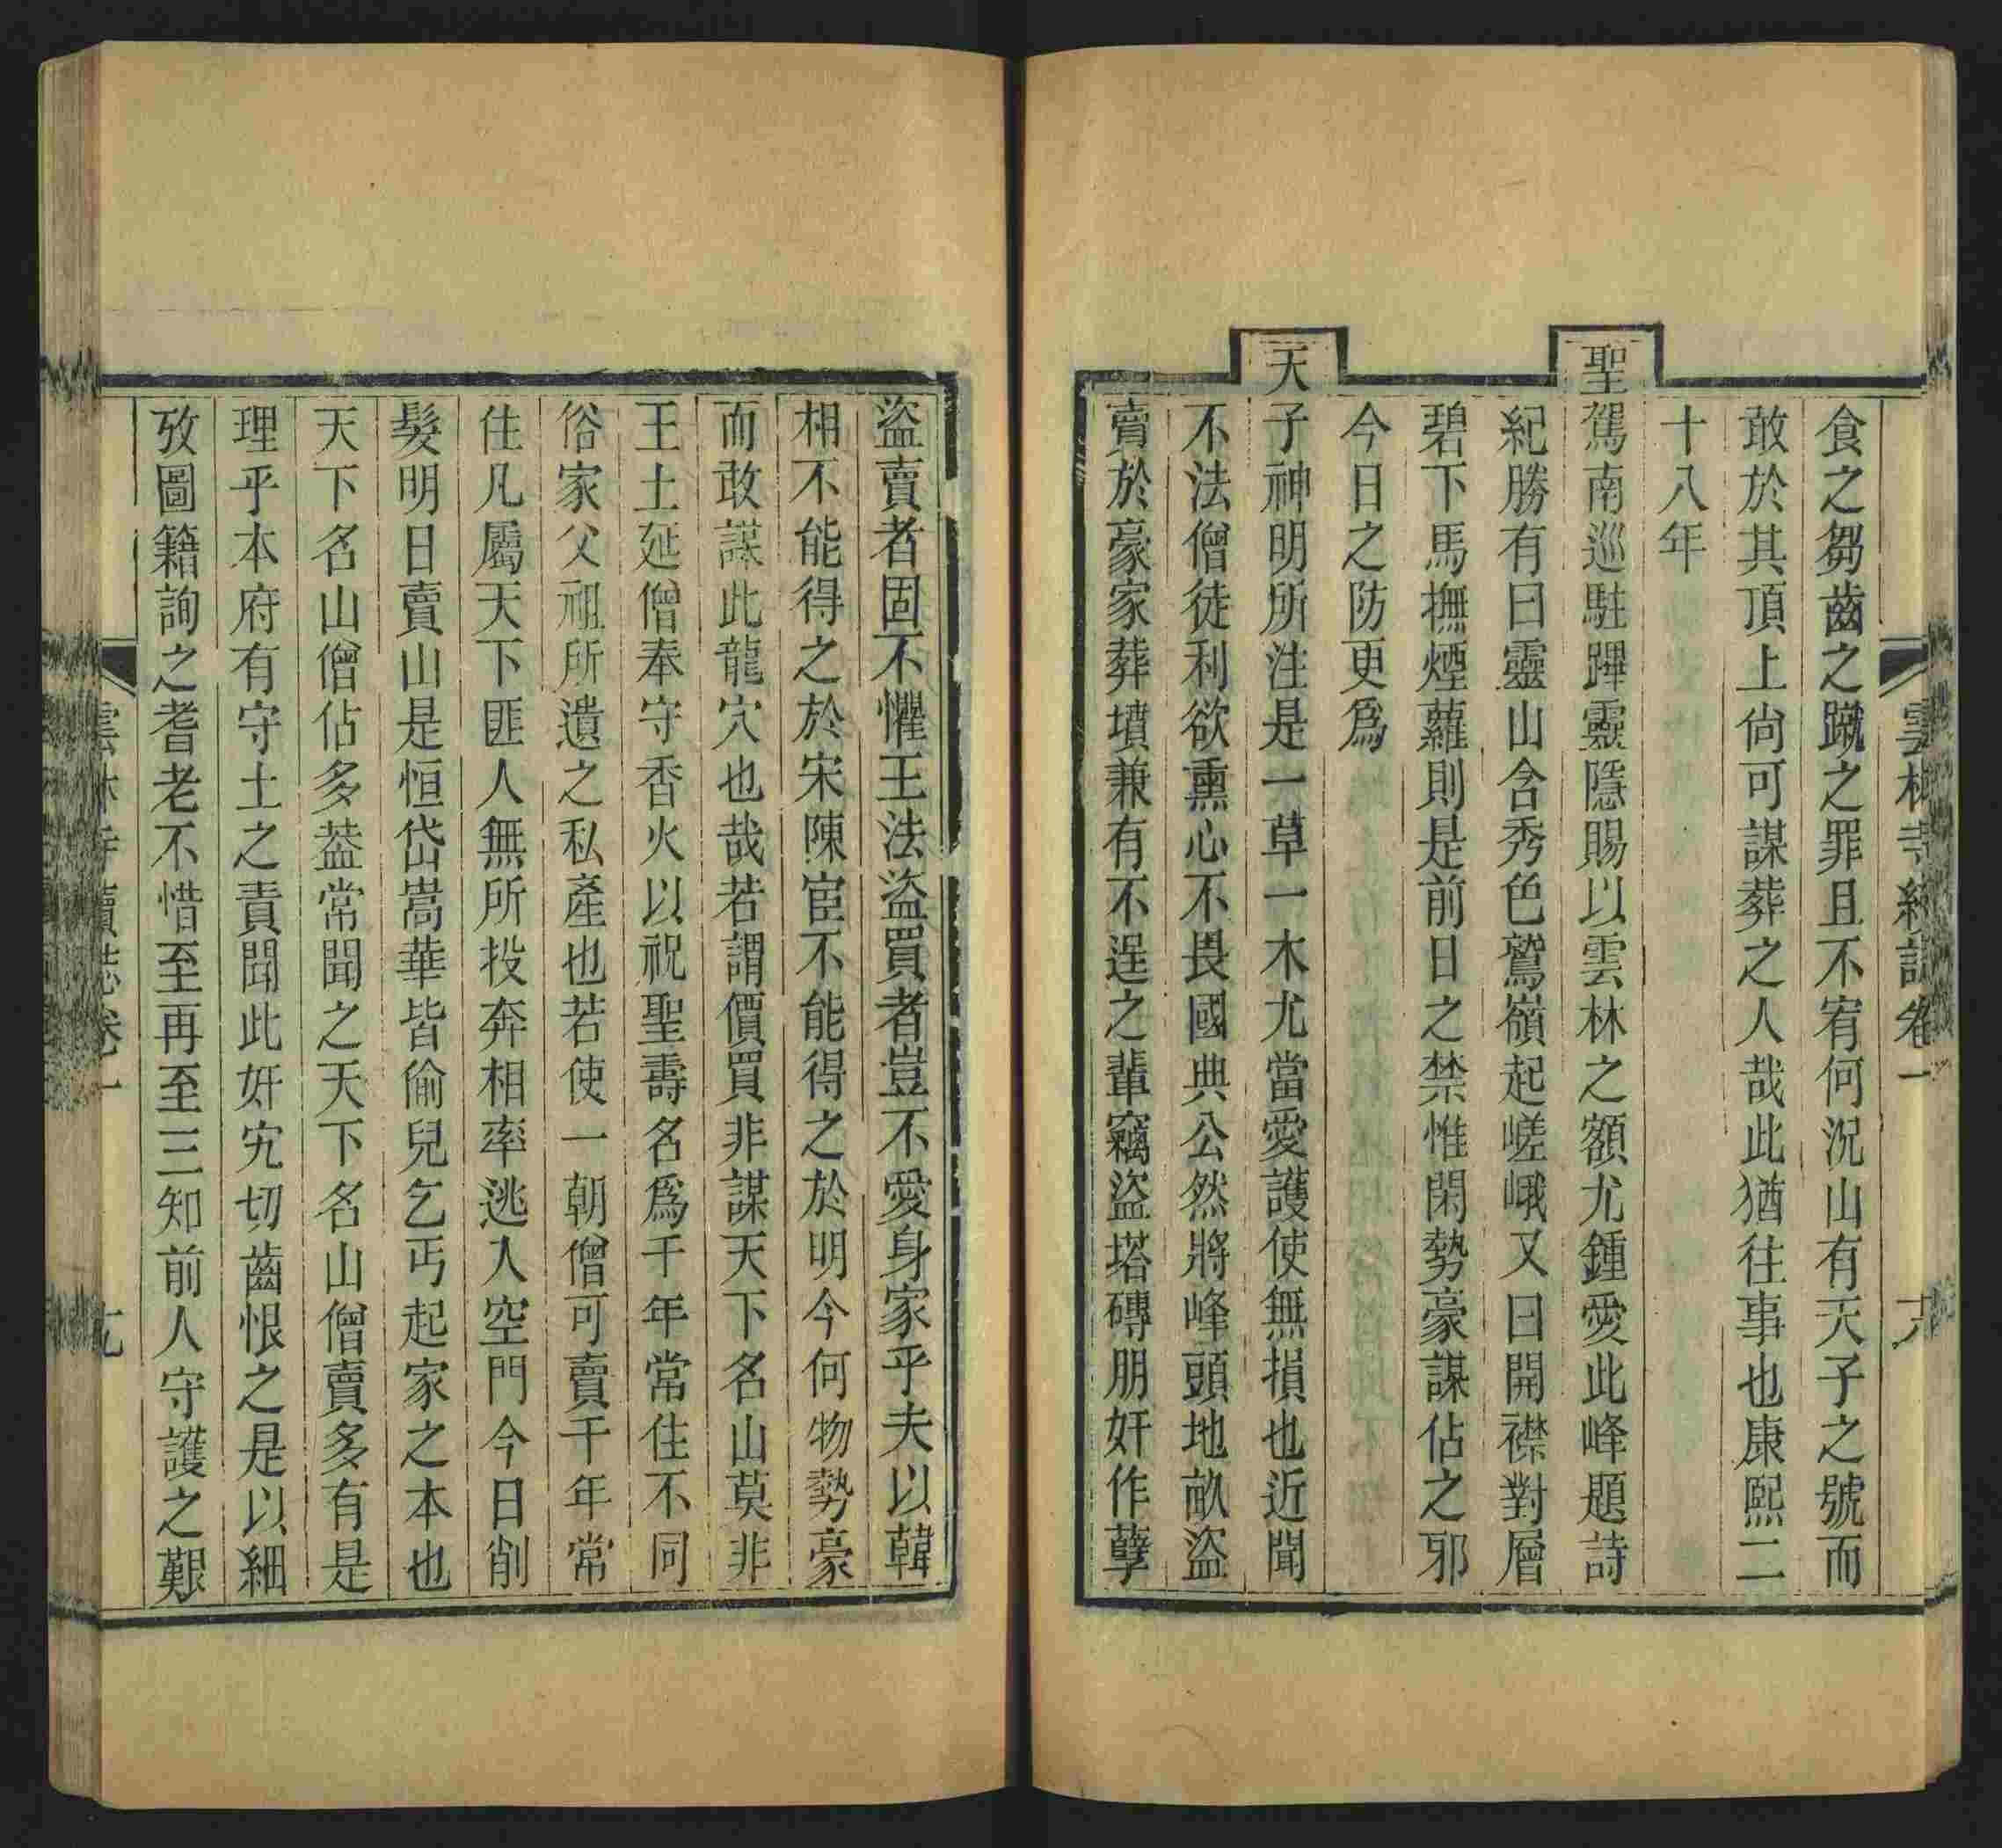 雲林寺續誌卷一 十八
食之芻齒之蹴之罪且不宥何況山有天子之號而
敢於其頂上尙可謀葬之人哉此猶往事也康熙二
十八年
聖駕南巡駐蹕靈隱賜以雲林之額尤鍾愛此峰題詩
紀勝有曰靈山含秀色鷲嶺起嵯峨又曰開襟對層
碧下馬撫煙蘿則是前日之禁惟閑勢豪謀佔之邪
今日之防更爲
天子神明所注是一草一木尤當愛護使無損也近聞
不法僧徒利欲熏心不畏國典公然將峰頭地畝盜
賣於豪家葬墳兼有不逞之輩竊盜塔磚朋奸作孽
盜賣者固不懼王法盜買者豈不愛身家乎夫以韓
相不能得之於宋陳宦不能得之於明今何物勢豪
而敢謀此龍穴也哉若謂價買非謀天下名山莫非
王土延僧奉守香火以祝聖壽名爲千年常住不同
俗家父祖所遺之私產也若使一朝僧可賣千年常
住凡屬天下匪人無所投奔相率逃入空門今日削
髮明日賣山是恒岱嵩華皆偷兒乞丐起家之本也
天下名山僧佔多葢常聞之天下名山僧賣多有是
理乎本府有守土之責聞此奸宄切齒恨之是以細
攷圖籍詢之耆老不惜至再至三知前人守護之艱
雲林寺續誌卷一 十九